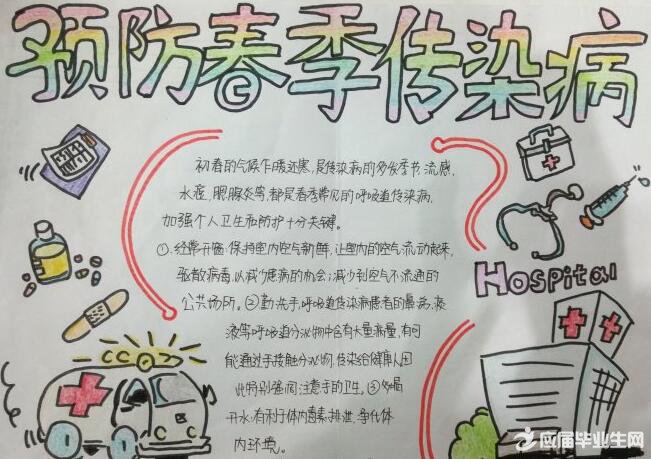 预防春季传染病
初春的气候乍暖还寒,是传染病的多发季节,流感、
水痘、腮腺炎等,都是春季常见的呼吸道传染病,
加强个人卫生和防护十分关键。
①经常开窗,保持室内空气新鲜,让室内的空气流动起来,
驱散病毒,以减少患病的机会;减少到空气不流通的
公共场所。②勤洗手,呼吸道传染病患者的鼻涕、痰
液等呼吸道分泌物中含有大量病毒,有可
能通过手接触分泌物,传染给健康人,因
此特别强调注意手的卫生。③多喝
开水,有利于体内毒素排泄,净化体
内环境。
Hospital
应届毕业生网